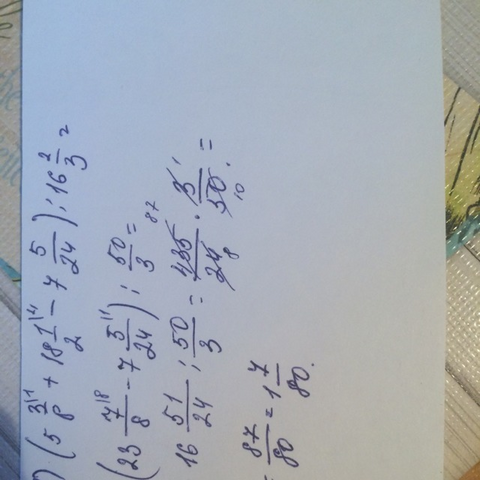 ) (5 3/8 \1 + 18 1/2 \4 - 7 5/24) : 16 2/3 =
(23 7/8 \8 - 7 5/24 \1) : 50/3 =
16 51/24 : 50/3 = 435/24 · 3/50 = 87 1 8 10
= 87/80 = 1 7/80.